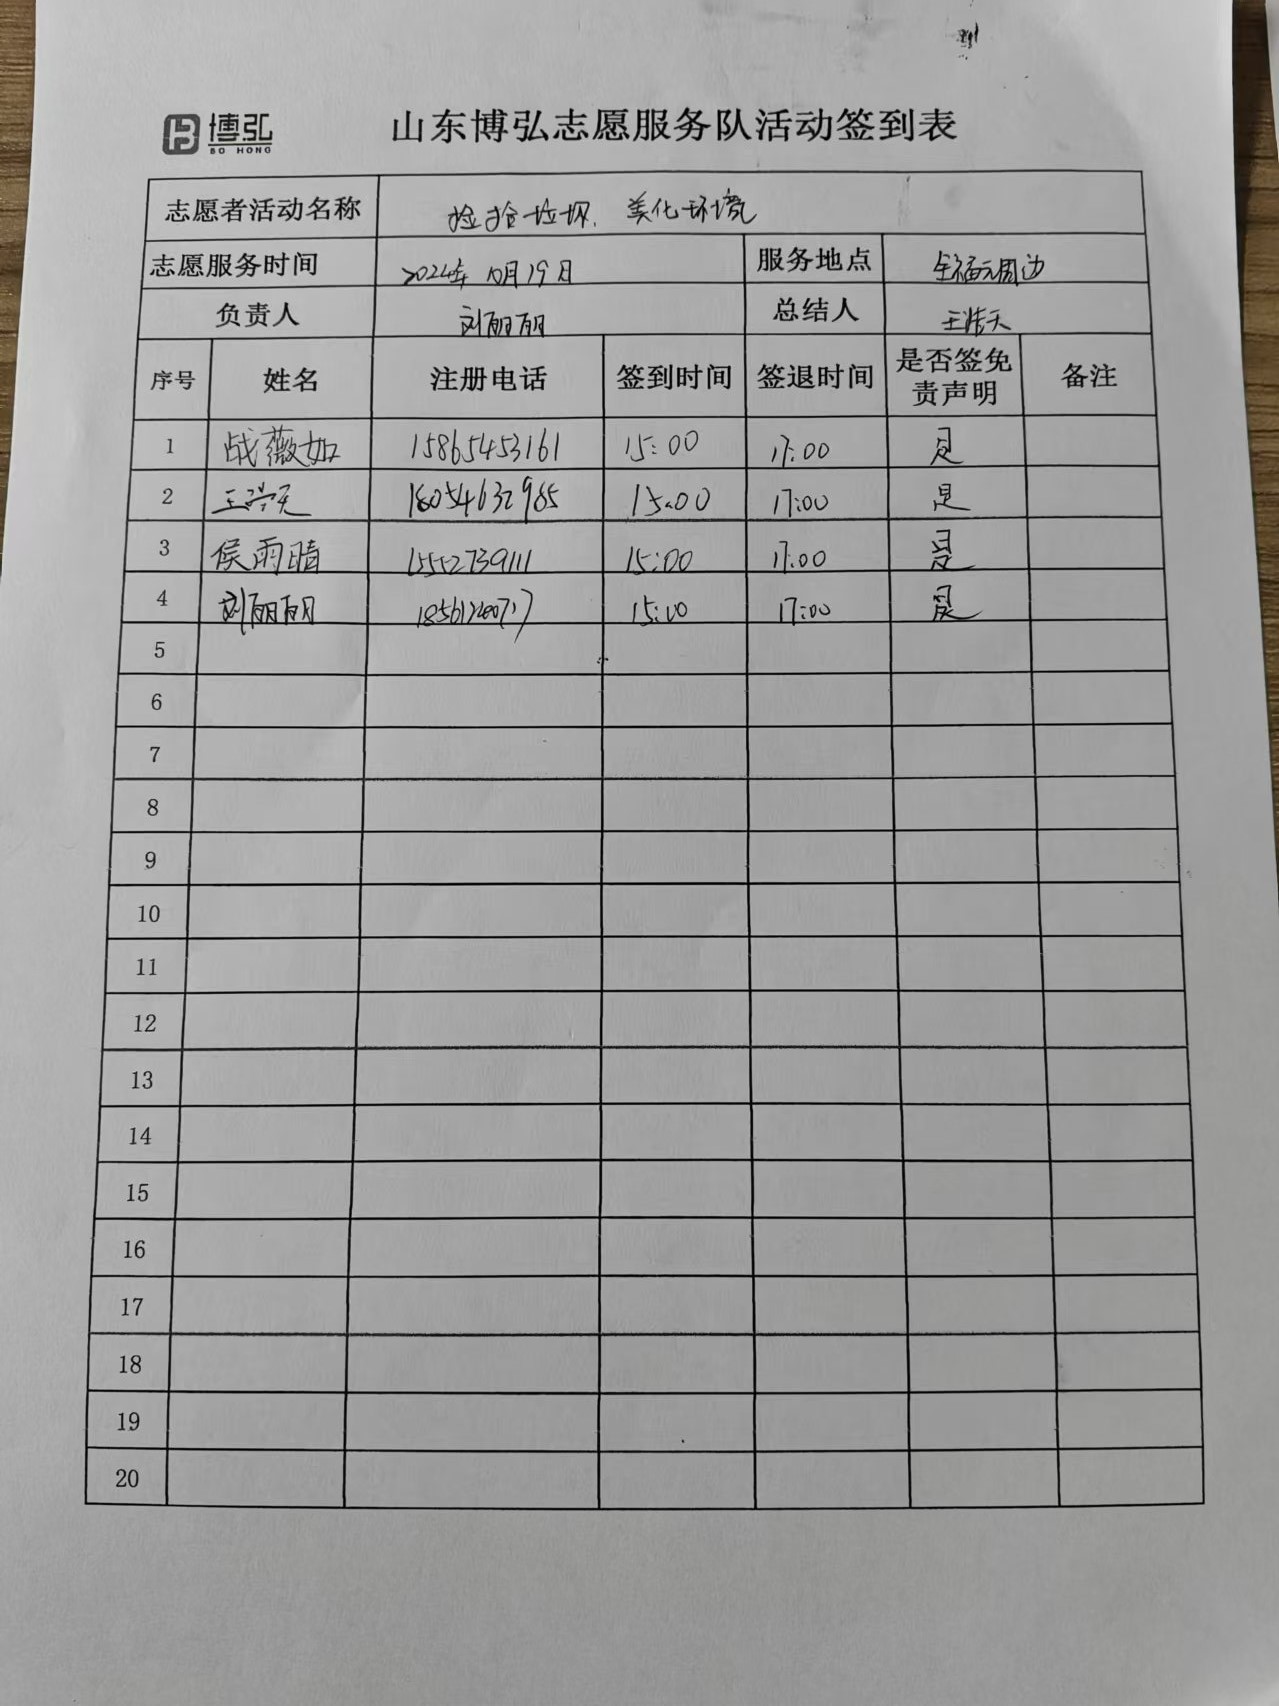 博弘
BO HONG
山东博弘志愿服务队活动签到表
志愿者活动名称 捡拾垃圾、美化环境
志愿服务时间 2024年10月19日 服务地点 全福元周边
负责人 刘丽丽 总结人 王浩天
序号 姓名 注册电话 签到时间 签退时间 是否签免责声明 备注
1 战薇如 15865453161 15:00 17:00 是
2 王浩天 18054632985 15:00 17:00 是
3 侯雨晴 15552739111 15:00 17:00 是
4 刘丽丽 15:00 17:00 是
5
6
7
8
9
10
11
12
13
14
15
16
17
18
19
20